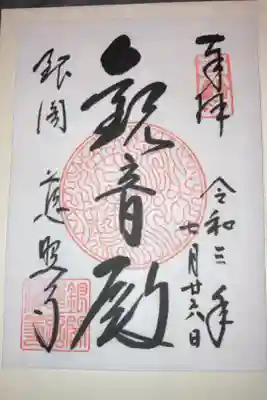 奉拝
令和三年
七月廿六日
観音殿
銀閣
慈照寺